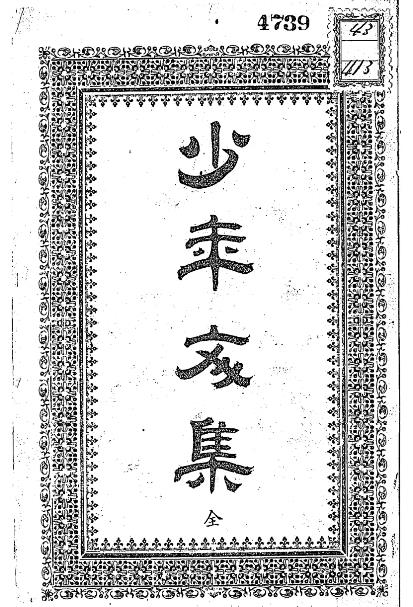 4739
43
413
少年文集
全